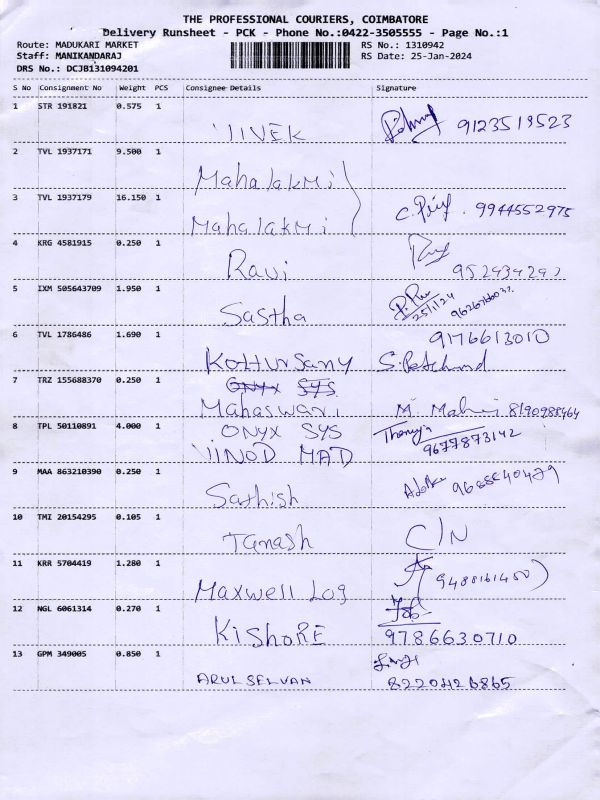 THE PROFESSIONAL COURIERS, COIMBATORE
Delivery Runsheet - PCK - Phone No.:0422-3505555 - Page No.:1
Route: MADUKARI MARKET RS No.: 1310942
Staff: MANIKANDARAJ RS Date: 25-Jan-2024
DRS No.: DCJB131094201
S No Consignment No Weight PCS Consignee Details Signature
1 STR 191821 0.575 1
VIVEK 9123519523
2 TVL 1937171 9.500 1
Mahalakmi
3 TVL 1937179 16.150 1
Mahalakmi 9944552975
4 KRG 4581915 0.250 1
Ravi
5 IXM 505643709 1.950 1
Sastha 25/1/24
6 TVL 1786486 1.690 1 9176613010
Kottursamy
7 TRZ 155688370 0.250 1 ONYX SYS
Mahaswari 8190988464
8 TPL 50110891 4.000 1 ONYX SYS
VINOD MAD 9677873142
9 MAA 863210390 0.250 1
Sathish 9688540479
10 TMI 20154295 0.105 1
Tanash C/N
11 KRR 5704419 1.280 1
Maxwell Log
12 NGL 6061314 0.270 1
KISHORE 9786630710
13 GPM 349005 0.850 1
ARULSELVAN 8220426865